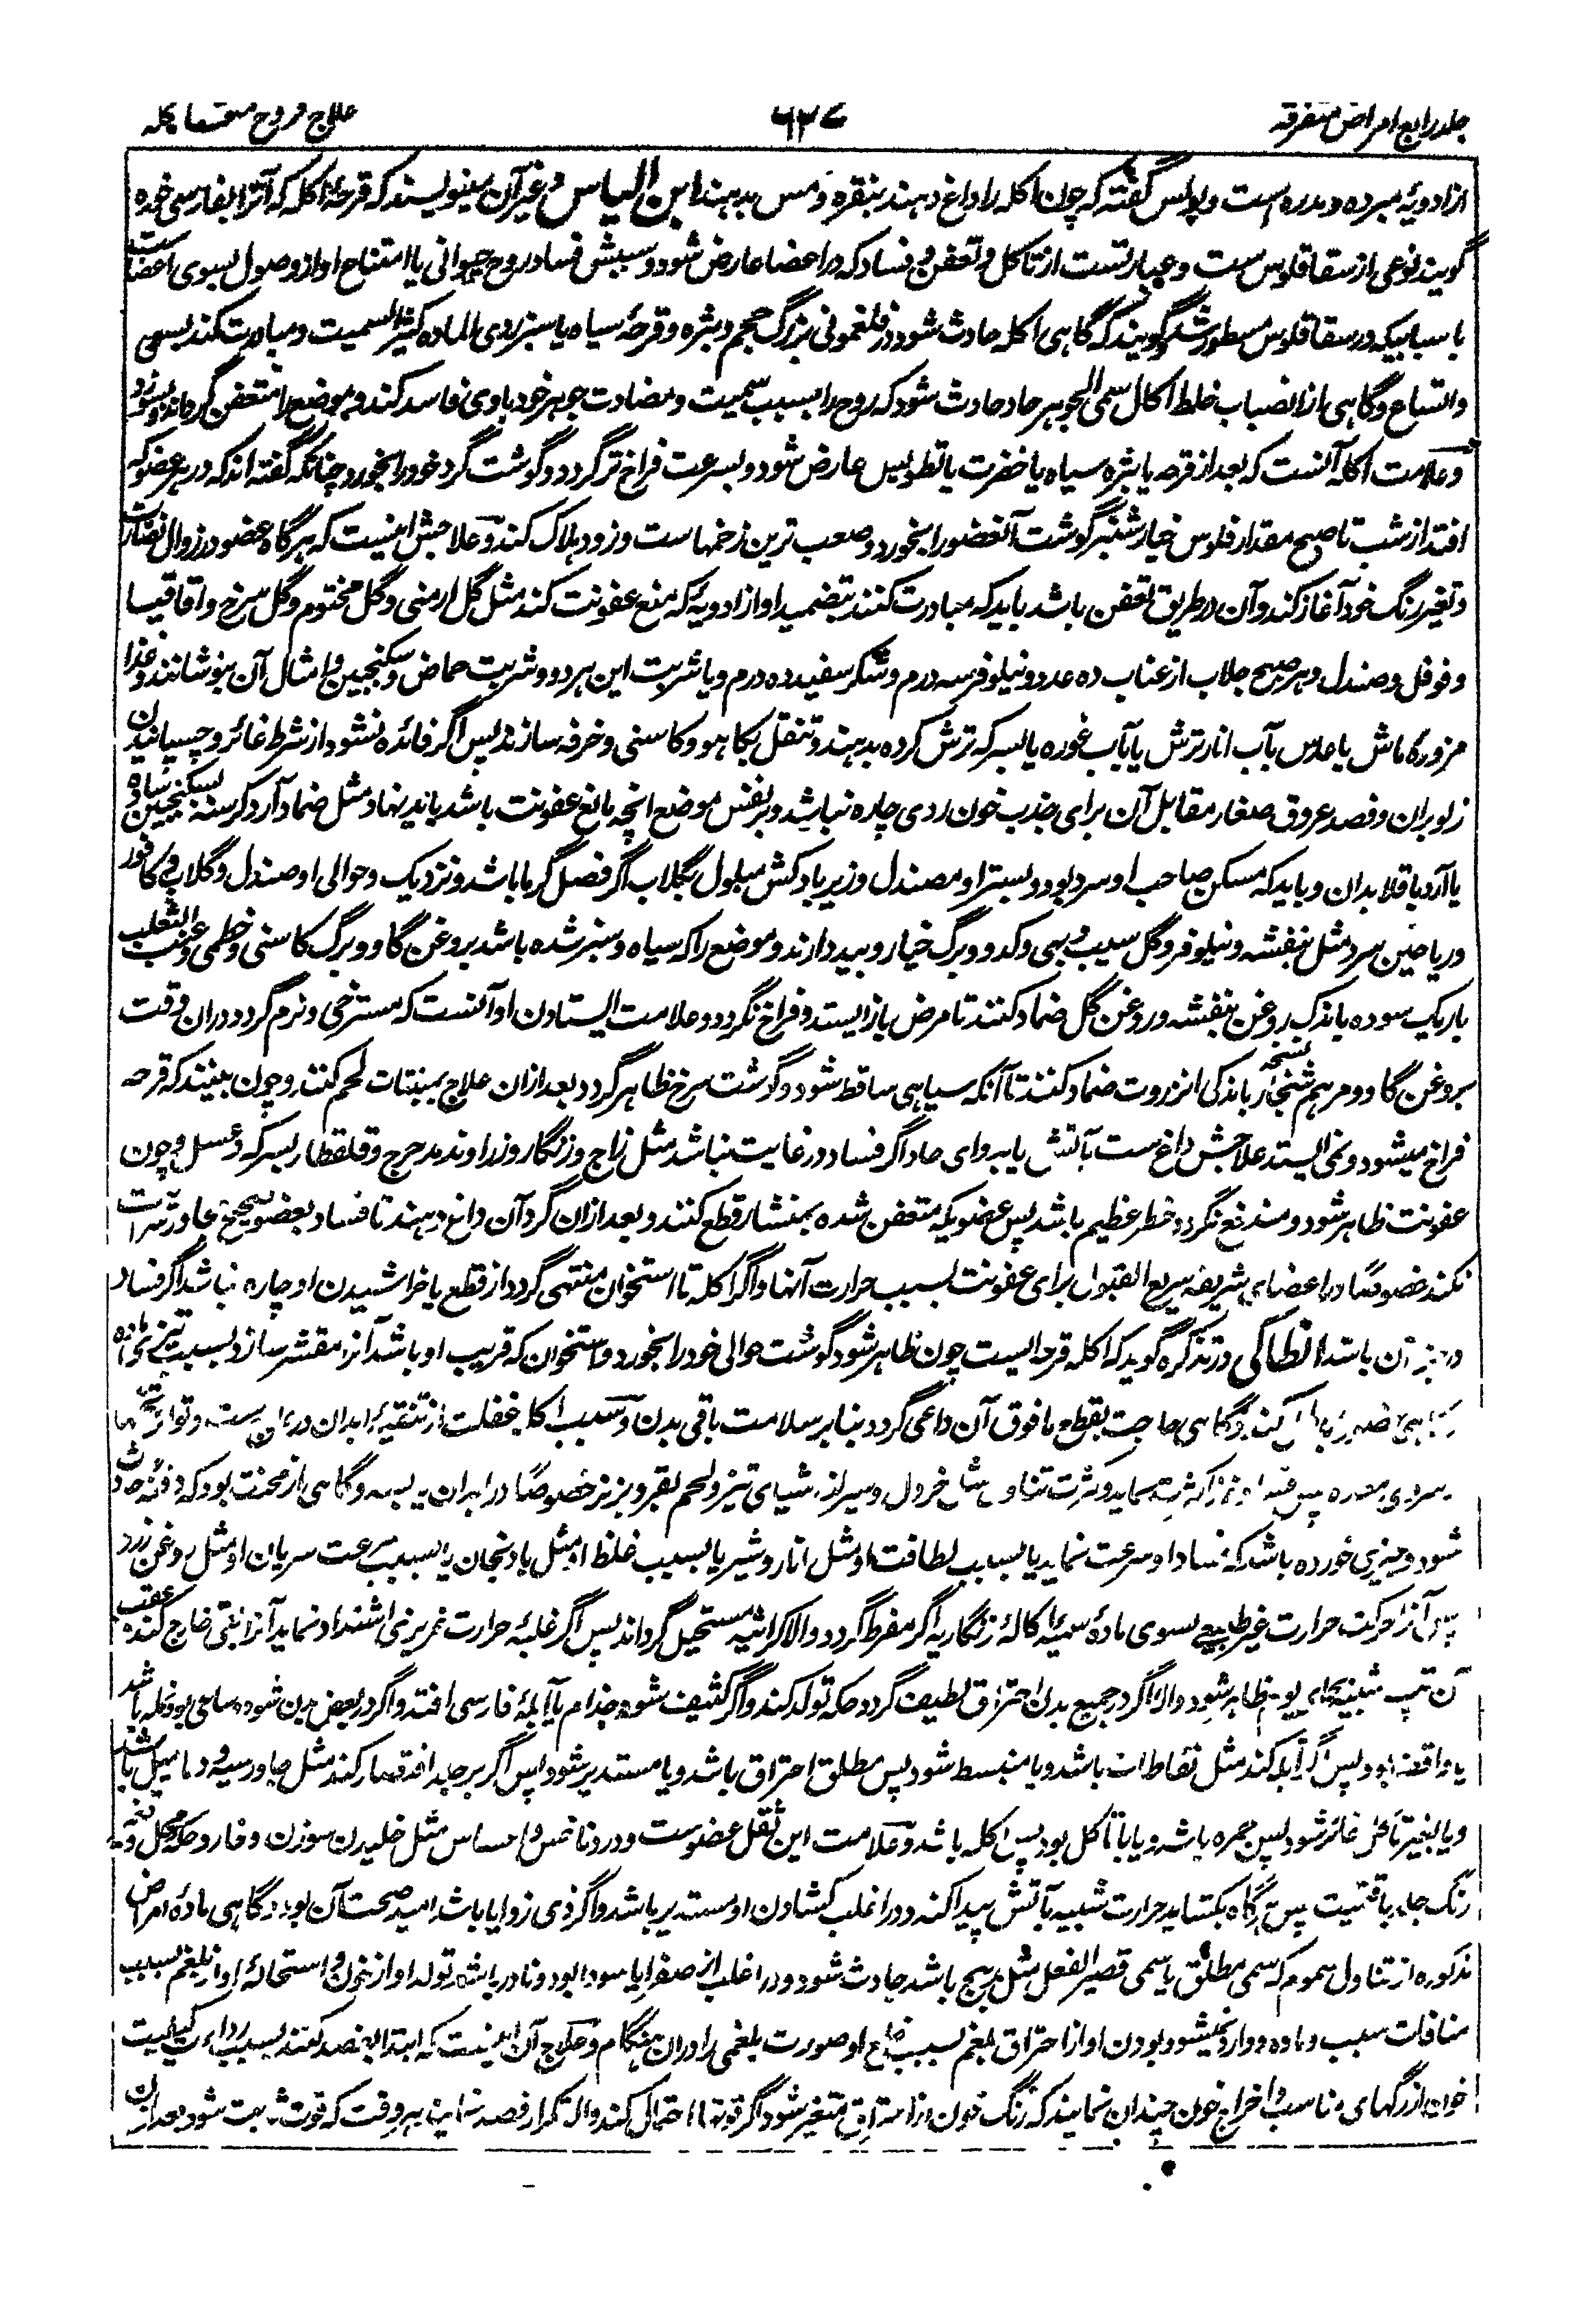 جلد رابع امراض متفرقه
۶۳۷
علاج قروح متعفنه اکله
از ادویهٔ مبرده و مدره است و پولس گفته که چون اکله را داغ دهند بنقره و مس بدهند ابن الیاس و غیر آن مینویسند که قرحهٔ اکله که آنرا بفارسی خوره
گویند نوعی از سقاقلوس ست و عبارتست از تاکل و تعفن و فساد که در اعضا عارض شود و سببش فساد روح حیوانی یا امتناع او از وصول بسوی اعضاست
باسبابیکه در سقاقلوس مسطور شد و گویند که گاهی اکله حادث شود در فلغمونی بزرگ حجم و بثره و قرحهٔ سیاه یا سبز ردی الماده کثیر السمیت و مبادرت کند بسعی
و اتساع و گاهی از انصباب خلط اکال سمی الجوهر حاد حادث شود که روح را بسبب سمیت و مضادت جوهر خود باوی فاسد کند و موضع را متعفن گرداند و بسوزد
و علامت اکله آنست که بعد از قرحه یا بثره سیاه یا خضرت یا تطویس عارض شود و بسرعت فراخ تر گردد و گوشت گرد خود را بخورد چنانکه گفته اند که در هر عضو که
افتد از شب تا صبح مقدار فلوس خیارشنبر گوشت آن عضو را بخورد و صعب ترین زخمهاست و زود هلاک کند و علاجش اینست که هرگاه عضو در زوال نضارت
و تغیر رنگ خود آغاز کند و آن در طریق تعفن باشد باید که مبادرت کنند بتضمید او از ادویه که منع عفونت کند مثل گل ارمنی و گل مختوم و گل سرخ و اقاقیا
و فوفل و صندل و هر صبح جلاب از عناب ده عدد و نیلوفر سه درم و شکر سفید ده درم و یا شربت این هر دو و شربت حماض و سکنجبین و امثال آن بنوشانند و غذا
مزورهٔ ماش یا عدس بآب انار ترش یا بآب غوره یا بسرکه ترش کرده بدهند و تنقل بکاهو و کاسنی و خرفه سازند پس اگر فائده نشود از شرط غائر و چسپانیدن
زلو بران و فصد عروق صغار مقابل آن برای جذب خون ردی چاره نباشد و بر نفس موضع انچه مانع عفونت باشد باید نهاد مثل ضماد آرد کرسنه بسکنجبین ساده
یا آرد باقلا بدان و باید که مسکن صاحب او سرد بود و بستر او مصندل و زیر بادکش مبلول بگلاب اگر فصل گرما باشد و نزدیک و حوالی او صندل و گلاب و کافور
و ریاحین سرد مثل بنفشه و نیلوفر و گل سیب و بهی و کدو و برگ خیار و بید دارند و موضع را که سیاه و سبز شده باشد بروغن گاو و برگ کاسنی و خطمی و عنب الثعلب
باریک سوده باندک روغن بنفشه و روغن گل ضماد کنند تا مرض باز ایستد و فراخ نگردد و علامت ایستادن او آنست که مسترخی و نرم گردد دران وقت
بروغن گاو و مرهم شنجار باندکی انزروت ضماد کنند تا آنکه سیاهی ساقط شود و گوشت سرخ ظاهر گردد بعد ازان علاج بمنبتات لحم کنند و چون بینند که قرحه
فراخ میشود و نمی ایستد علاجش داغ ست بآتش یا بدوای حاد اگر فساد در غایت نباشد مثل زاج و زنگار و زراوند مدحرج و قلقطار بسرکه و عسل و چون
عفونت ظاهر شود و مندفع نگردد خطر عظیم باشد پس عضویکه متعفن شده بمنشار قطع کنند و بعد ازان گرد آن داغ دهند تا فساد بعضو صحیح مجاور سرایت
نکند خصوصاً در اعضای شریفه سریع القبول برای عفونت بسبب حرارت آنها و اگر اکله تا استخوان منتهی گردد از قطع یا خراشیدن او چاره نباشد اگر فساد
در آن باشد انطاکی در تذکره گوید که اکله قرحه ایست چون ظاهر شود گوشت حوالی خود را بخورد و استخوان که قریب او باشد آنرا مقشر سازد بسبب تیزی ماده
و گاهی حاجت بقطع ما فوق آن داعی گردد بنابر سلامت باقی بدن و سبب اکله غفلت از تنقیهٔ ابدان و تواتر
و کثرت تناول مثل خردل و سیر از اشیای تیز و لحم بقر و بز نر خصوصاً در ابدان یابسه و گاهی از صحت بود که دفعهٔ حادث
شود و چیزی خورده باشد که فساد او سرعت نماید یا بسبب لطافت او مثل انار و شیر یا بسبب غلظ او مثل بادنجان یا بسبب سرعت سریان او مثل روغن زرد
پس آنرا حرکت حرارت غیر طبیعی بسوی مادهٔ سمیه اکالهٔ زنگاریه اگر مفرط گردد و الا کراثیه مستحیل گرداند پس اگر غلبهٔ حرارت غریزی اشتداد نماید آنرا بقی خارج کند عقب
آن تب شبیه بحمی یوم ظاهر شود و الا اگر در جمیع بدن احتراق لطیف گردد حکه تولد کند و اگر کثیف شود جذام یا آبلهٔ فارسی افتد و اگر در بعض بدن شود ساعی بود نمله باشد
یا واقفه بود پس اگر آبله کند مثل نفاطات باشد و یا منبسط شود پس مطلق احتراق باشد و یا مستدیر شود پس اگر بر جلد اقتصار کند مثل جاورسیه و دمامیل باشد
و یا بغیر تاکل غائر شود پس جمره باشد و یا با تاکل بود پس اکله باشد و علامت این ثقل عضوست و درد ناخس و احساس مثل خلیدن سوزن و خار و حکه
رنگ جلد پس هرگاه بکشاید حرارت شبیه بآتش پیدا کند و در اغلب کشادن او مستدیر باشد و اگر ذی زوایا باشد امید صحت آن بود و گاهی مادهٔ امراض
مذکوره از تناول سموم که سمی مطلق یا سمی قصیر الفعل مثل بهج باشد حادث شود و در اغلب از صفرا یا سودا بود و نادر باشد تولد او از خون و استحالهٔ او از بلغم بسبب
منافات سبب و ماده و وارد نمیشود بودن او از احتراق بلغم بسبب خلع او صورت بلغمی را دران هنگام و علاج آن اینست که ابتدا بفصد کنند بسبب رداءت کیفیت
خون از رگهای مناسب و اخراج خون چندان نمایند که رنگ خون از احتراق متغیر شود اگر قوتها احتمال کند و الا تکرار فصد نمایند بهر وقت که قوت ثابت شود بعد ازان